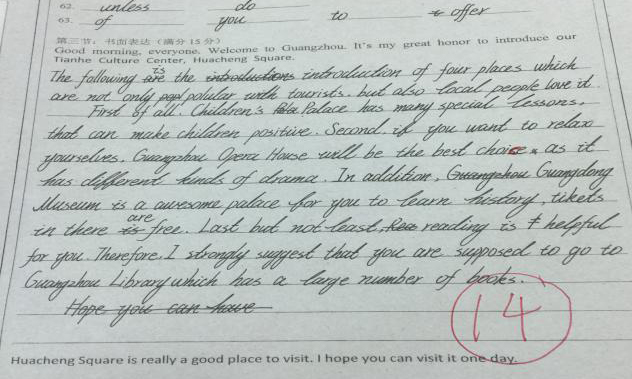 62. unless do
63. of you to offer
第三节：书面表达（满分15分）
Good morning, everyone. Welcome to Guangzhou. It's my great honor to introduce our
Tianhe Culture Center, Huacheng Square.
The following are is the introductions introduction of four places which
are not only pop polular with tourists, but also local people love it.
First of all. Children's Palace has many special lessons.
that can make children positive. Second, if you want to relax
yourselves, Guangzhou Opera House will be the best choice, as it
has different kinds of drama. In addition, Guangzhou Guangdong
Museum is a awesome palace for you to learn history, tikets
in there is are free. Last but not least, Rea reading is helpful
for you. Therefore, I strongly suggest that you are supposed to go to
Guangzhou Library which has a large number of books.
Hope you can have
14
Huacheng Square is really a good place to visit. I hope you can visit it one day.